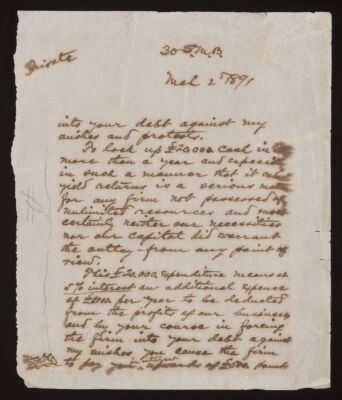 Private
30 S.M.B.
Mch 2d 1891
into your debt against my
wishes and protests.
To lock up £20,000 cash in
more than a year and especially
in such a manner that it cannot
yield returns is a serious matter
for any firm not possessed of
unlimited resources and most
certainly neither our necessities
nor our capital did warrant
the outlay from any point of
view.
This £20,000 expenditure means at
5% interest an additional expense
of £1000 per year to be deducted
from the profits of our business
and by your course in forcing
the firm into your debt against
my wishes you cause the firm
to pay you in interest upwards of £500